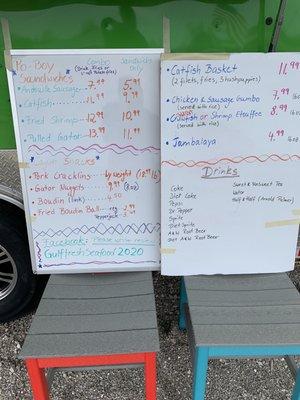 Po-Boy Combo Sandwich
Sandwiches (Drink, Fries or only
• Andouille Sausage 7.99 5.99
• Catfish 11.99 9.99
• Fried Shrimp 12.99 10.99
• Pulled Gator 13.99 11.99
Snacks
• Pork Cracklins by weight
• Gator Nuggets 9.99 (8oz)
• Boudin (link) 4.50
• Fried Boudin Ball reg
pepperjack
Facebook: Please write review
GulfFreshSeafood 2020
• Catfish Basket 11.99
(2 filets, fries, 3 hushpuppies)
• Chicken & Sausage Gumbo 7.99 16oz
(served with rice)
• Crawfish or Shrimp Etouffee 8.99 16oz
(served with rice)
• Jambalaya 4.99 16oz
Drinks
Coke Sweet & UnSweet Tea
Diet Coke Water
Pepsi Half & Half (Arnold Palmer)
Dr Pepper
Sprite
Diet Sprite
A&W Root Beer
Diet A&W Root Beer